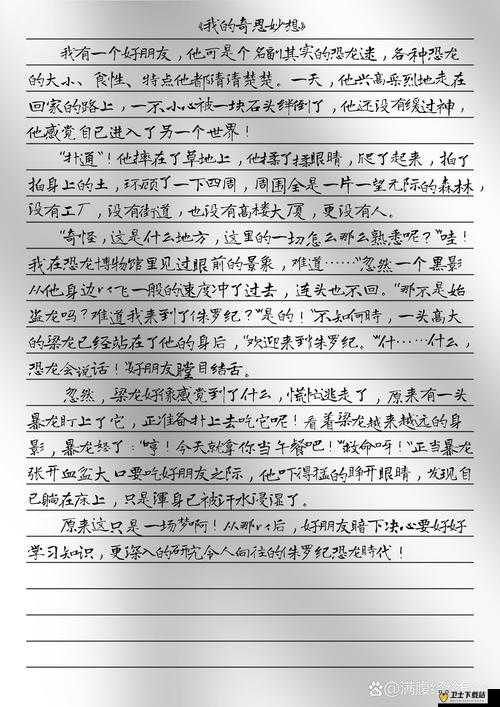 《我的奇思妙想》
我有一个好朋友，他可是个名副其实的恐龙迷，各种恐龙
的大小、食性、特点他都清清楚楚。一天，他兴高采烈地走在
回家的路上，一不小心被一块石头绊倒了，他还没有缓过神，
他感觉自己进入了另一个世界！
“扑通”！他摔在了草地上，他揉了揉眼睛，爬了起来，拍了
拍身上的土，环顾了一下四周，周围全是一片一望无际的森林，
没有工厂，没有街道，也没有高楼大厦，更没有人。
“奇怪，这是什么地方，这里的一切怎么那么熟悉呢？”哇！
我在恐龙博物馆里见过眼前的景象，难道……“忽然一个黑影
从他身边以飞一般的速度冲了过去，连头也不回。“那不是始
盗龙吗？难道我来到了侏罗纪？”是的！”不知何時，一头高大
的梁龙已经站在了他的身后，“欢迎来到侏罗纪。”什……什么，
恐龙会说话！”好朋友瞠目结舌。
忽然，梁龙好像感觉到了什么，慌忙逃走了，原来有一头
暴龙盯上了它，正准备扑上去吃它呢！看着梁龙越来越远的身
影，暴龙怒了：“哼！今天就拿你当午餐吧！”“救命呀！”正当暴龙
张开血盆大口要吃好朋友之际，他吓得猛的睁开眼睛，发现自
己躺在床上，只是渾身已被汗水浸湿了。
原来这只是一场梦啊！从那以后，好朋友暗下决心要好好
学习知识，更深入的研究令人向往的侏罗纪恐龙時代！
知乎 @满腹经
卫士下载站